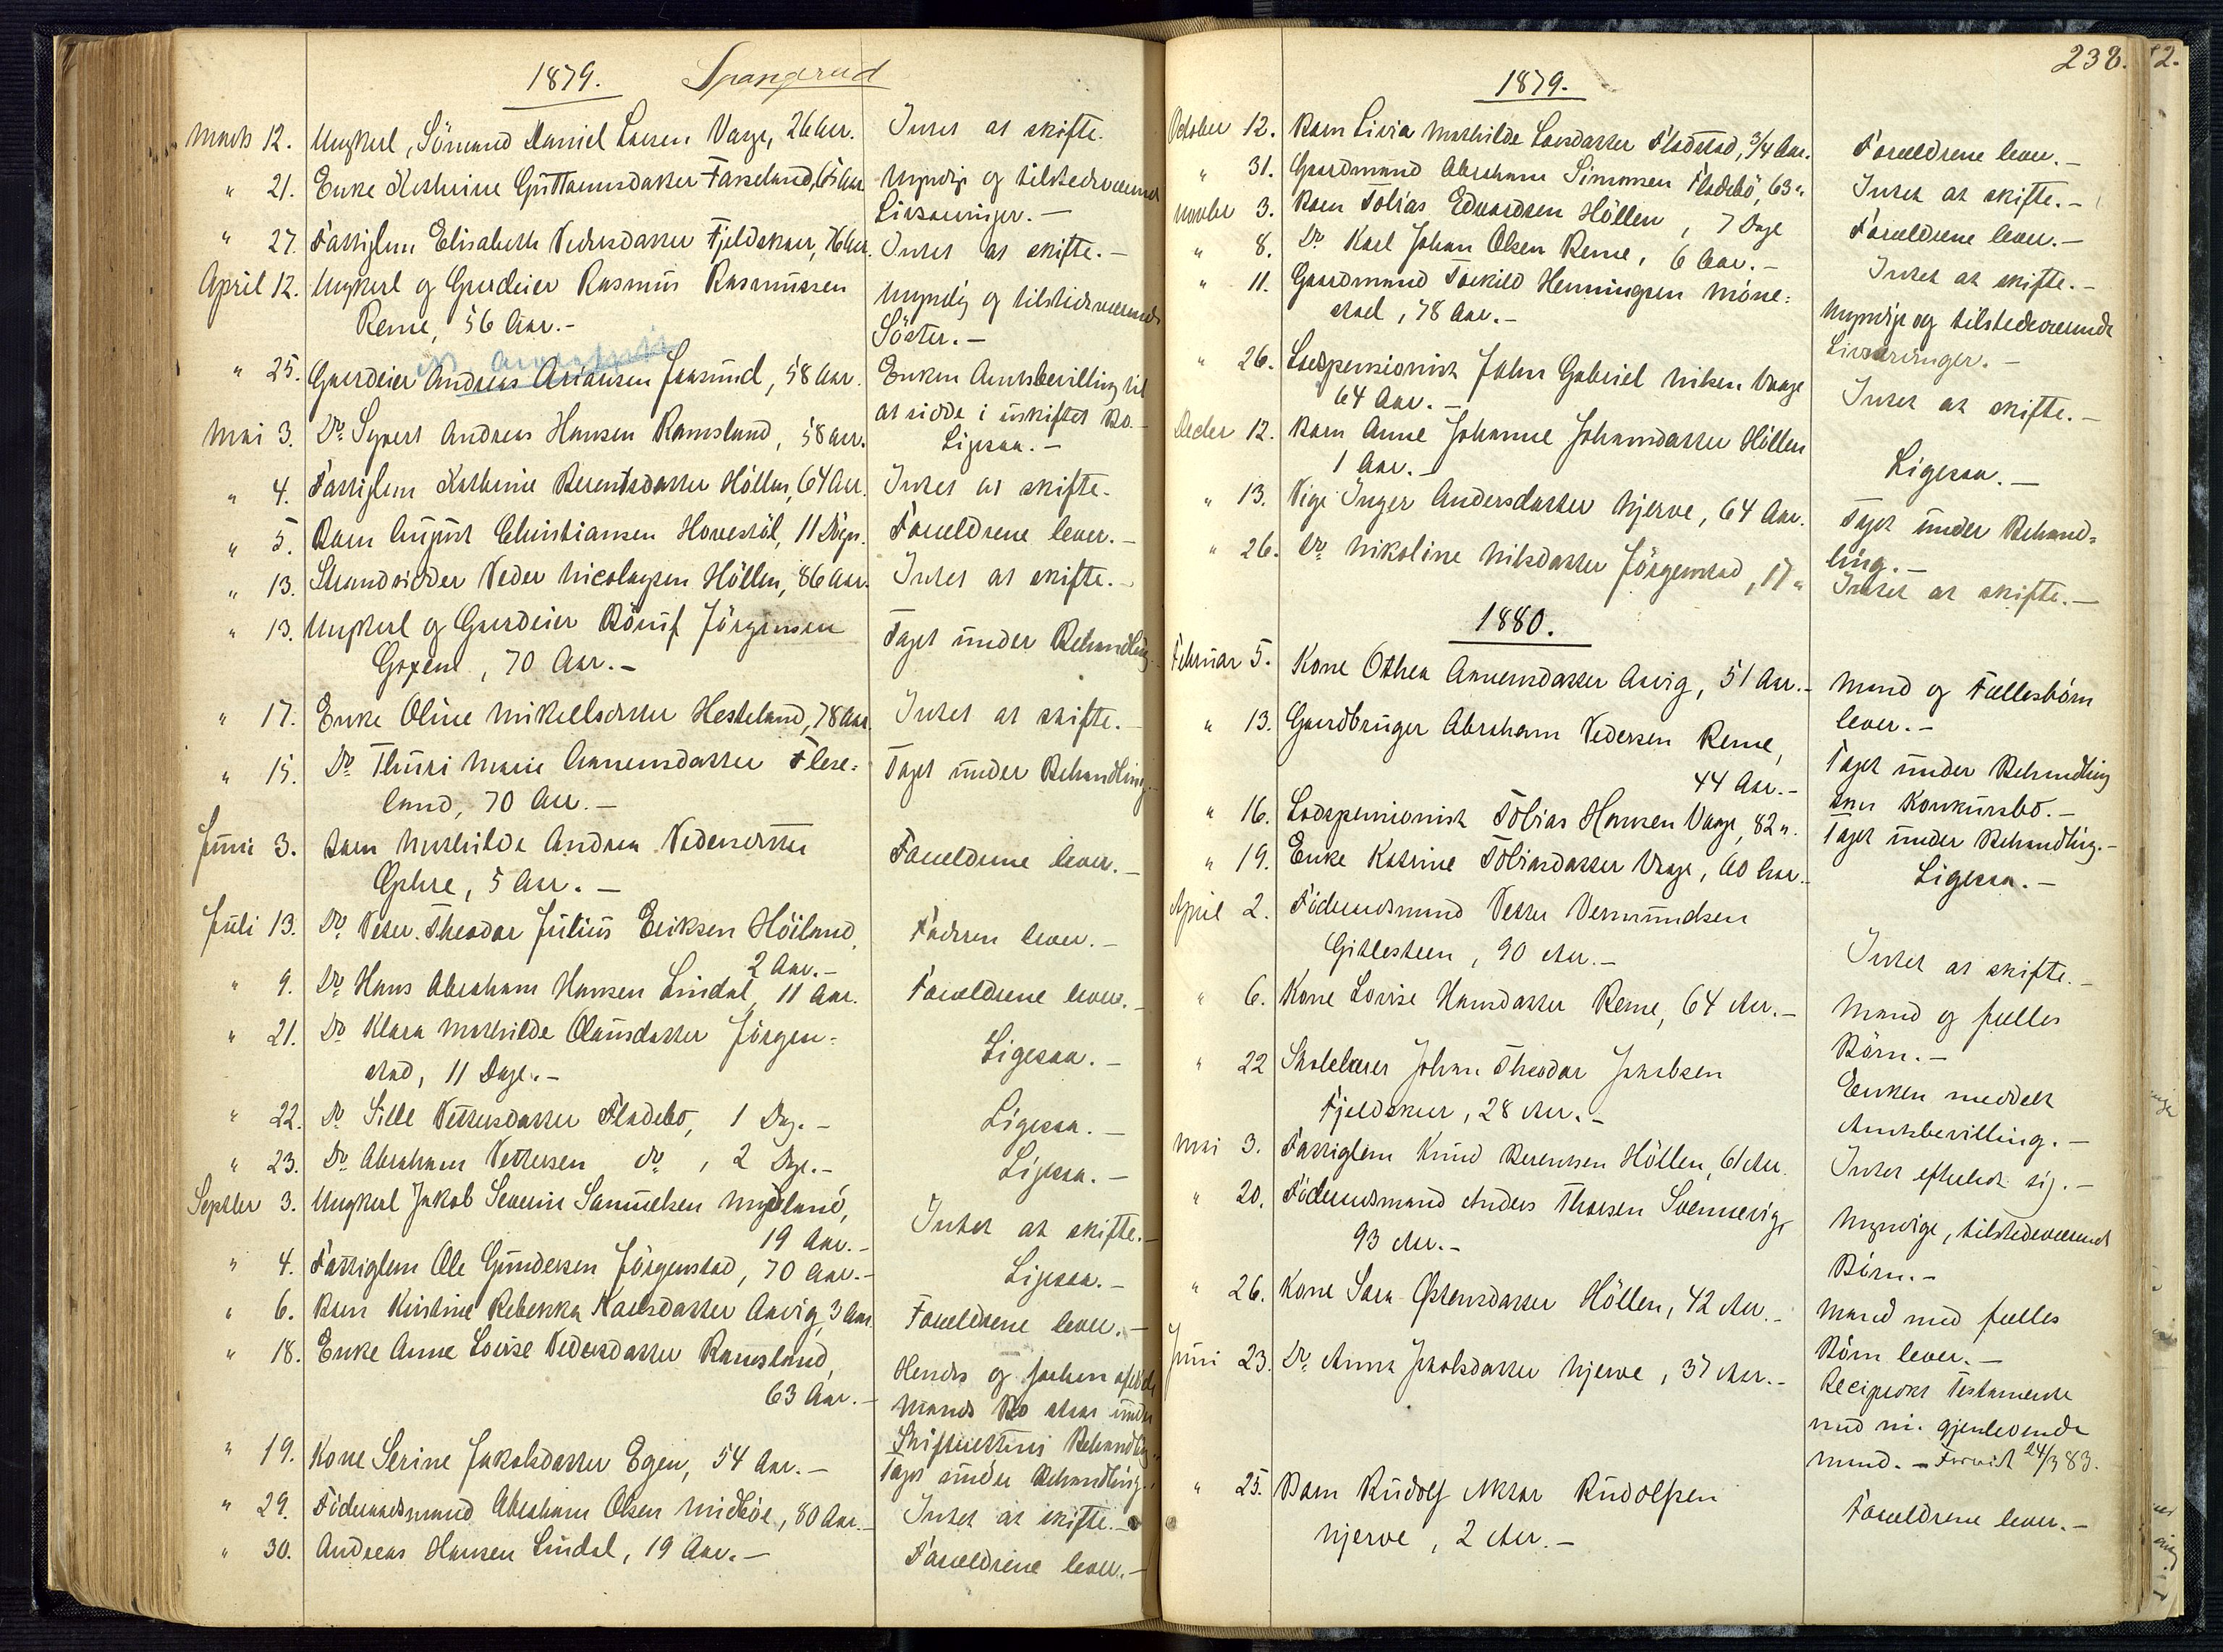 1879. Spangerud
Marts 12. Ungkarl, Sömand Daniel Larsen Vaage, 26 Aar. Intet at skifte.
" 21. Enke Kathrine Guttormsdatter Fasseland, 65 Aar Myndige og tilstedeværende
Livsarvinger. —
" 27. Fattiglem Elisabeth Pedersdatter Fjeldskaar, 76 Aar. Intet at skifte. —
April 12. Ungkarl og Gaardeier Rasmus Rasmussen Myndig og tilstedeværende
Reme, 56 Aar. — Söster. —
" 25. Gaardeier Andreas Ariansen Jaasund, 58 Aar. Enken Amtsbevilling til
at sidde i uskiftet Bo. —
Mai 3. Do Syvert Andreas Hansen Ramsland, 58 Aar. Ligesaa. —
" 4. Fattiglem Kathrine Berentsdatter Höllen, 64 Aar. Intet at skifte.
" 5. Barn August Christiansen Hovestöl, 11 Dage. Forældrene lever. —
" 13. Strandsidder Peder Nicolaysen Höllen, 86 Aar. Intet at skifte. —
" 13. Ungkarl og Gaardeier Jörgensen Taget under Behandling.
70 Aar. —
" 17. Enke Oline Mikkelsdatter Hesteland, 78 Aar. Intet at skifte. —
" 15. Do Thuri Marie Aanensdatter Flese= Taget under Behandling.
land, 70 Aar. —
Juni 3. Barn Mathilde Andrea Pedersdatter Forældrene lever. —
5 Aar. —
Juli 13. Do Peter Theodor Julius Eriksen Höiland, Faderen lever. —
2 Aar. —
" 9. Do Hans Abraham Hansen Lindal, 11 Aar. Forældrene lever. —
" 21. Do Klara Mathilde Olausdatter Jörgen= Ligesaa. —
stad, 11 Dage. —
" 22. Do Sille Pettersdatter Fladebo, 1 Dag. — Ligesaa. —
" 23. Do Abraham Pettersen do, 2 Dage. — Ligesaa. —
Septber 3. Ungkarl Jakob Severin Samuelsen Nygland, Intet at skifte. —
19 Aar. —
" 4. Fattiglem Ole Gundersen Jörgenstad, 70 Aar. — Ligesaa. —
" 6. Barn Kirstine Rebekka Karlsdatter Aavig, 3 Aar. Forældrene lever. —
" 18. Enke Anne Lovise Pedersdatter Ramsland, Hendes og forhen afdöde
63 Aar. — Mands Bo staar under
Skifterettens Behandling.
" 19. Kone Serine Jakobsdatter Egen, 54 Aar. — Taget under Behandling.
" 29. Föderaadsmand Abraham Olsen Midböe, 80 Aar. — Intet at skifte. —
" 30. Andreas Hansen Lindal, 19 Aar. — Forældrene lever. —
238.
1879.
October 12. Barn Livia Mathilde Larsdatter Fladstad, 3/4 Aar. Forældrene lever. —
" 31. Gaardmand Abraham Simonsen Fladebö, 63 " Intet at skifte. —
Novbr 3. Barn Tobias Edvardsen Höllen, 7 Dage Forældrene lever. —
" 8. Do Karl Johan Olsen Reme, 6 Aar. — Intet at skifte. —
" 11. Gaardmand Torkild Henningsen Möne= Myndige og tilstedeværende
stad, 78 Aar. — Livsarvinger. —
" 26. Lodspensionist John Gabriel Nilsen Vaage Intet at skifte. —
64 Aar. —
Decbr 12. Barn Anne Johanne Johansdatter Höllen Ligesaa. —
1 Aar. —
" 13. Pige Inger Andersdatter Njerve, 64 Aar. Taget under Behand=
ling. —
" 26. Do Nikoline Nilsdatter Jörgenstad, 17 " Intet at skifte. —
1880.
Februar 5. Kone Othea Aanensdatter Aavig, 51 Aar. — Mand og Fællesbörn
lever. —
" 13. Gaardbruger Abraham Pedersen Reme, Taget under Behandling
44 Aar. — som Konkursbo. —
" 16. Lodspensionist Tobias Hansen Vaage, 82 ". Taget under Behandling. —
" 19. Enke Katrine Tobiasdatter Vaage, 60 Aar. — Ligesaa. —
April 2. Föderaadsmand Petter Vermundsen
Gitlesteen, 90 Aar. — Intet at skifte. —
" 6. Kone Lovise Hansdatter Reme, 64 Aar. — Mand og fælles
Börn. —
" 22 Skolelærer Johan Theodor Jakobsen Enken meddelt
Fjeldskaar, 28 Aar. — Amtsbevilling. —
Mai 3. Fattiglem Knud Berentsen Höllen, 61 Aar. Intet efterladt sig. —
" 20. Föderaadsmand Anders Thorsen Svennevig, Myndige, tilstedeværende
93 Aar. — Börn. —
" 26. Kone Sara Østensdatter Höllen, 42 Aar. — Mand med fælles
Börn lever. —
Juni 23. Do Anna Jakobsdatter Njerve, 37 Aar. — Reciprokt Testamente
med m. gjenlevende
Mand. — 24/3 83.
" 25. Barn Rudolf Aksar Rudolfsen Forældrene lever. —
Njerve, 2 Aar. —